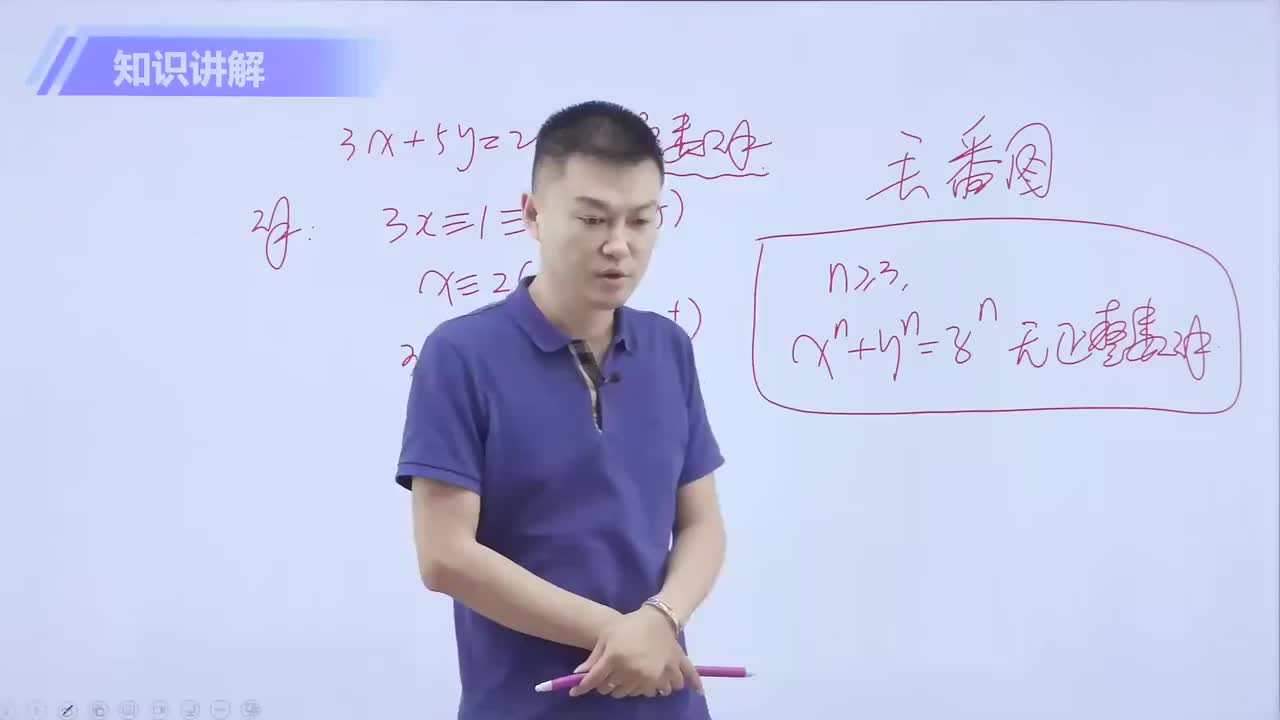 知识讲解
3x+5y=2
整数解
丢番图
解:
3x≡1≡
5)
x≡2(
t)
n≥3,
xⁿ+yⁿ=zⁿ 无正整数解.